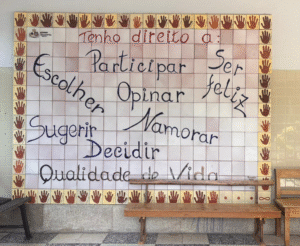 Tenho direito a:
Participar
Ser feliz
Escolher
Opinar
Sugerir
Namorar
Decidir
Qualidade de Vida